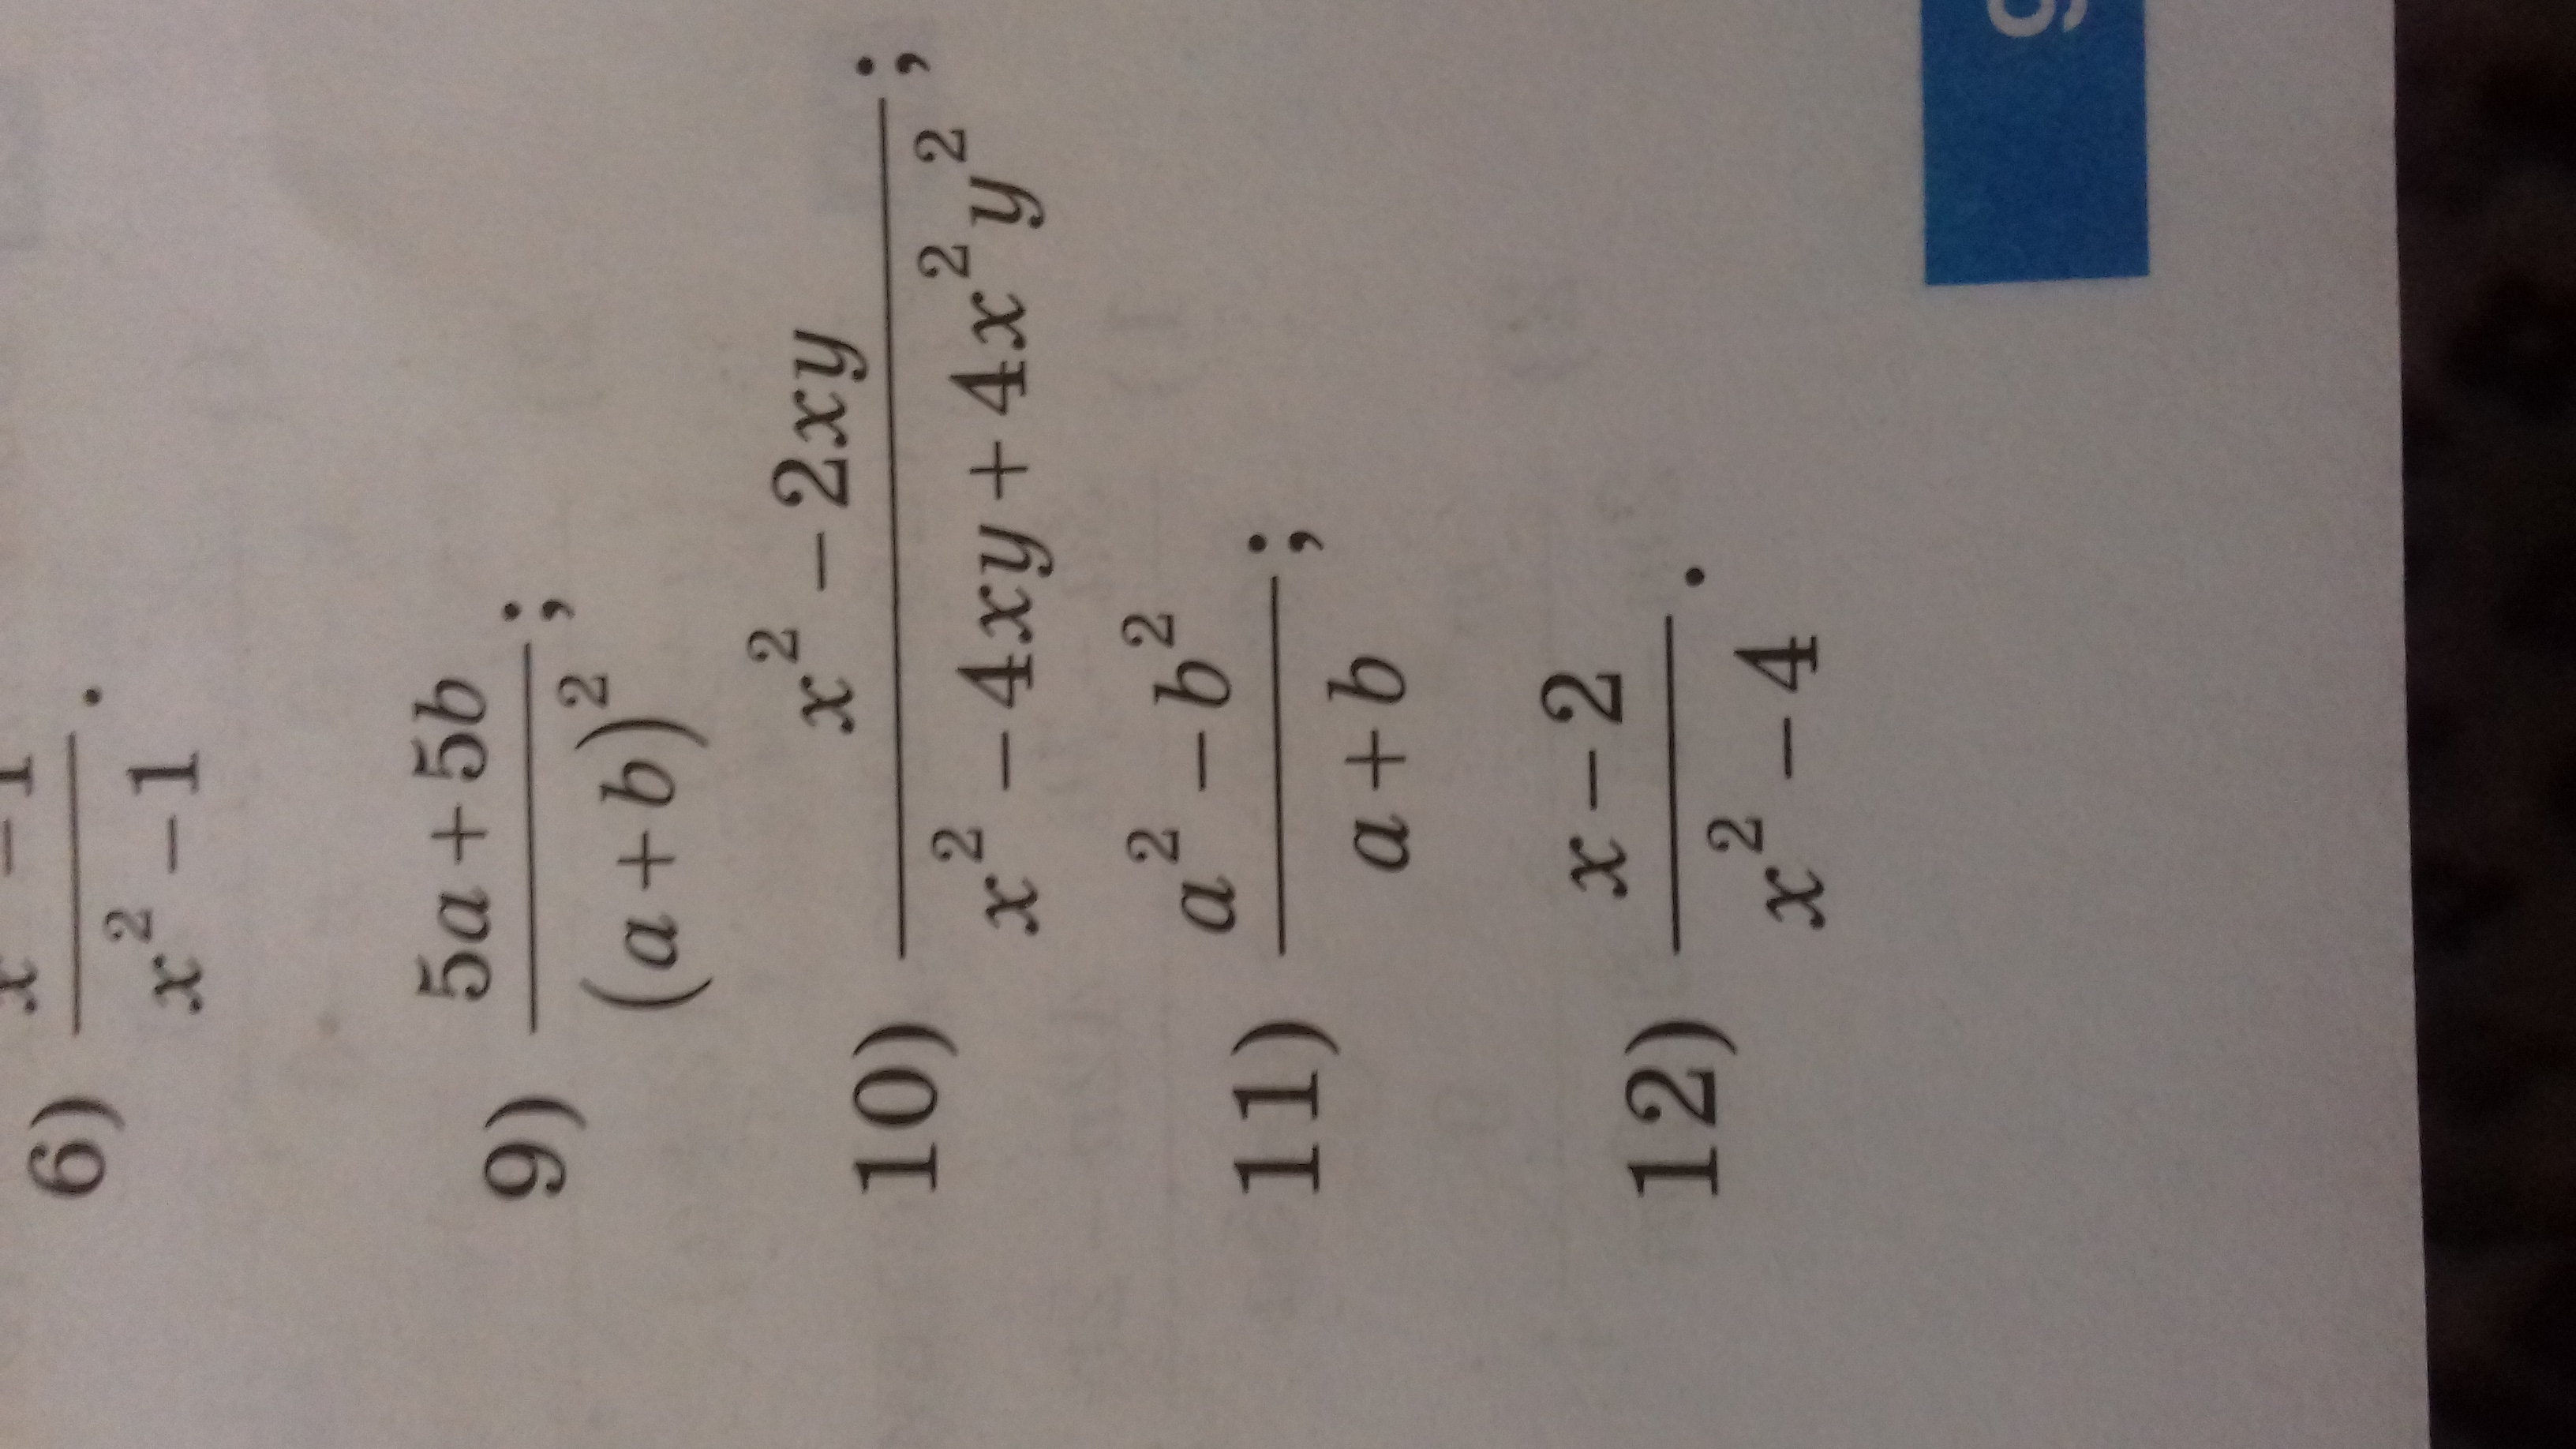 6) x - 1 / x² - 1 .
9) 5a + 5b / (a + b)² ;
10) x² - 2xy / x² - 4xy + 4x²y² ;
11) a² - b² / a + b ;
12) x - 2 / x² - 4 .